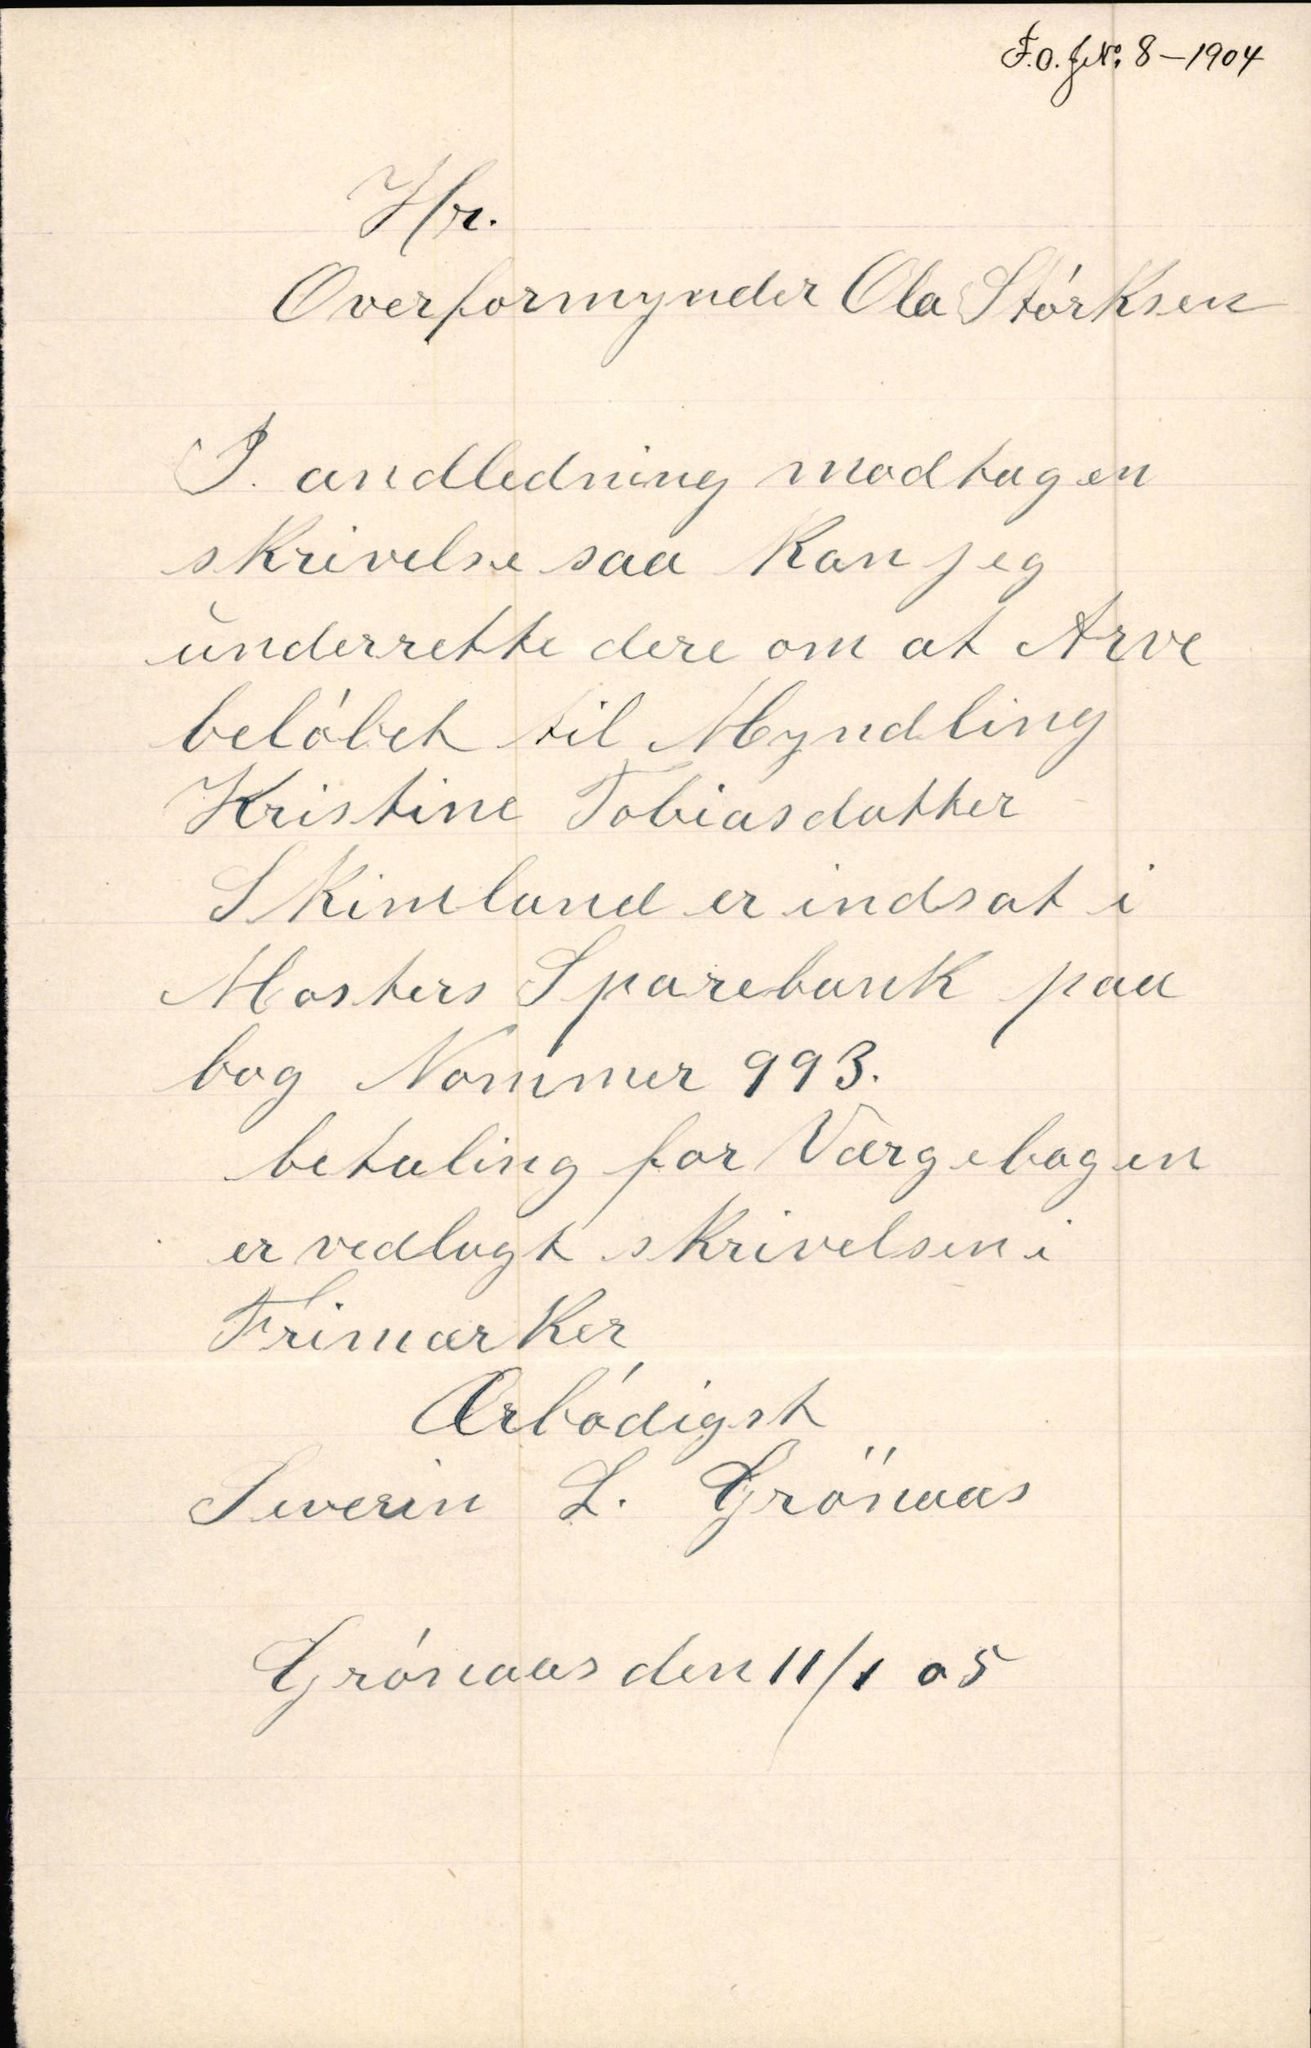 F.O. J.No. 8-1904
Hr.
Overformynder Ola Stórksen
I. andledning modtagen
skrivelse saa kan jeg
underrette dere om at Arve
belóbet til Myndling
Kristine Tobiasdatter
Skimland er indsat i
Mosters Sparebank paa
bog Nommer 993.
betaling for Værgebogen
er vedlagt skrivelsen i
Frimærker
Ærbódigst
Severin L. Grönaas
Grónaas den 11/1 05